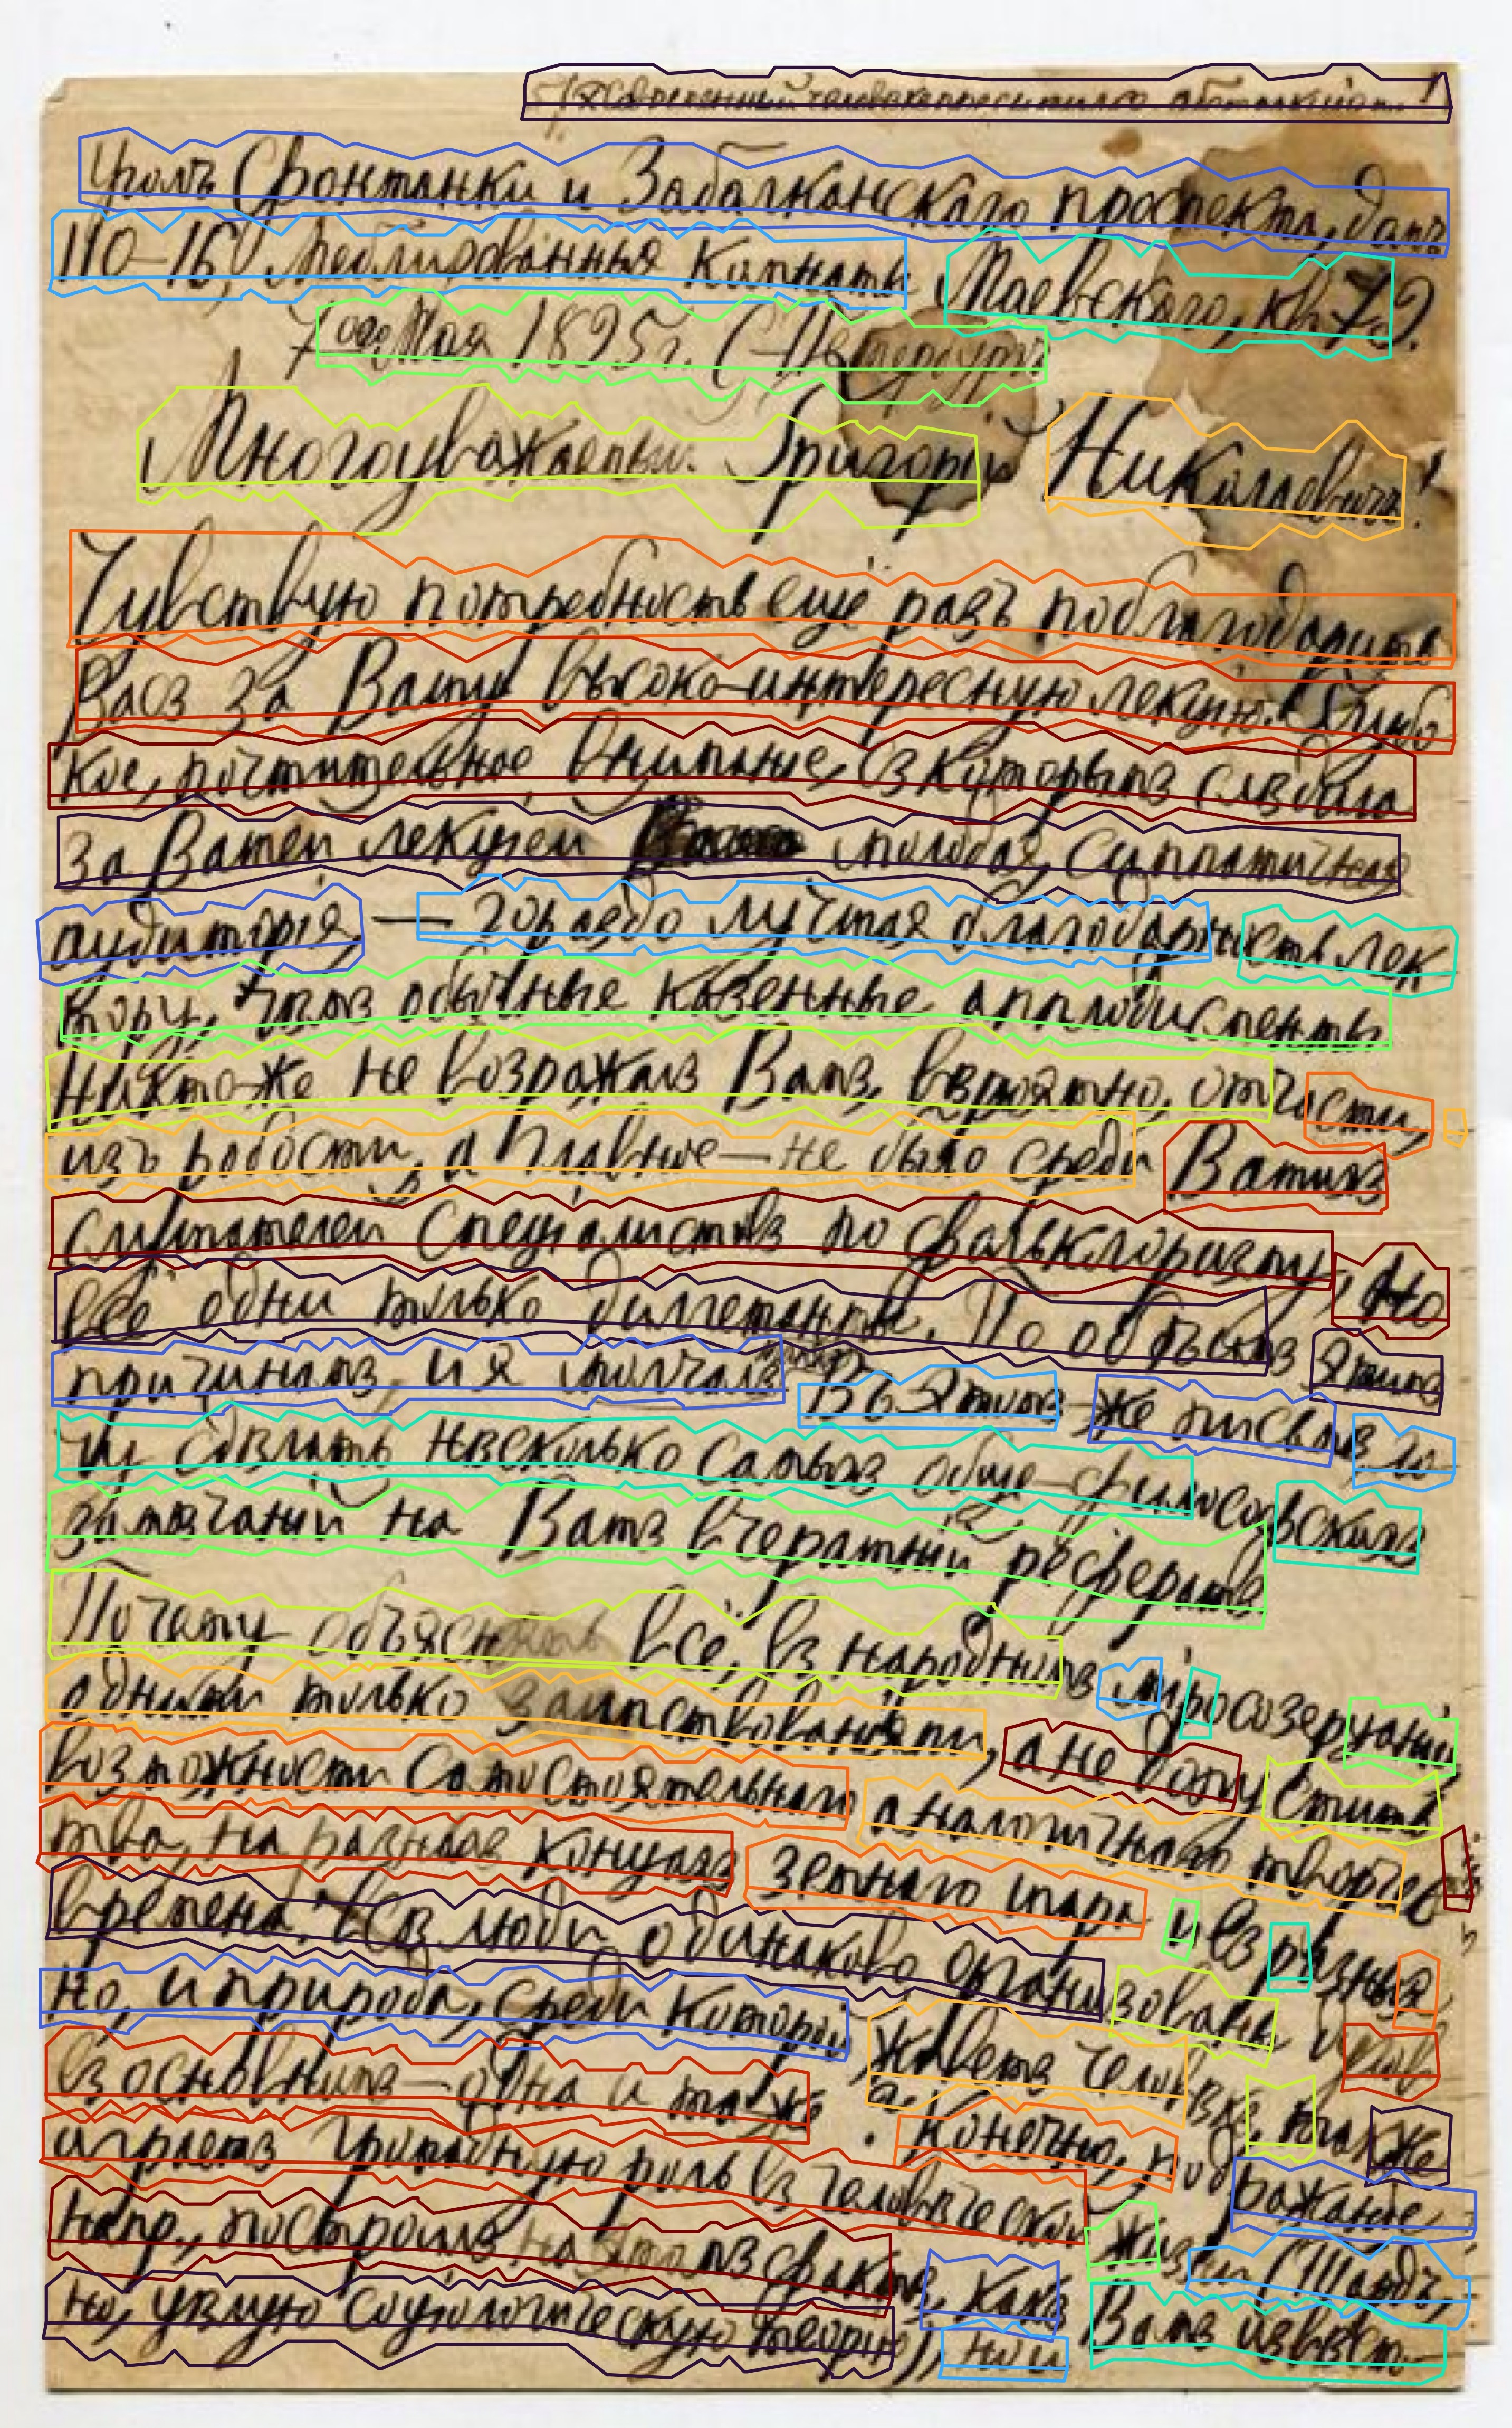 уголъ Фонтанки и Забалканскаго проспекта, домъ
110-16, меблированныя комнаты Маевскаго, кв. 79.
7ое Мая 1895 г. С-Петербургъ
Многоуважаемый Григорій Николаевичъ!
Чувствую потребность ещё разъ поблагодарить
Васъ за Вашу высоко-интересную лекцію. Глубо
кое, почтительное вниманіе, съ которымъ слѣдила
за Вашей лекціей молодая, симпатичная
аудиторія, — гораздо лучшая благодарность лек
тору, чѣмъ обычные казенные апплодисменты
Никто-же не возражалъ Вамъ, вѣроятно, отчасти,
изъ робости, а главное — не было среди Вашихъ
слушателей спеціалистовъ по фольклоризму, но
всё одни только диллетанты. По обѣимъ этимъ
причинамъ, и я молчалъ. Въ этомъ-же письмѣ хо
чу сдѣлать нѣсколько самыхъ обще-философскихъ
замѣчаній на Вашъ вчерашній рефератъ
Почему объяснять всё въ народныхъ міросозерцаніи
одними только заимствованіями, а не допустить
возможности самостоятельнаго аналогичнаго творчес
тва, на разныхъ концахъ земнаго шара и въ разныя
времена. Всѣ люди одинаково организованы
но, и природа, среди которой живетъ человѣкъ, также
въ основныхъ — одна и та же. Конечно, подражаніе
играетъ громадную роль въ человѣческой жизни (Тардъ,
напр., построилъ на этомъ фактѣ, какъ Вамъ извѣст-
но, узкую соціологическую теорію), но и